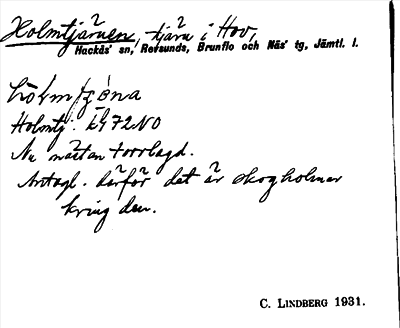 Holmtjärnen, tjärn i Hov,
Hackås' sn, Revsunds, Brunflo och Näs' tg, Jämtl. l.
Holmtj: LG72NO
Nu nästan torrlagd.
Antagl. därför det är skogholmar
kring den.
C. LINDBERG 1931.